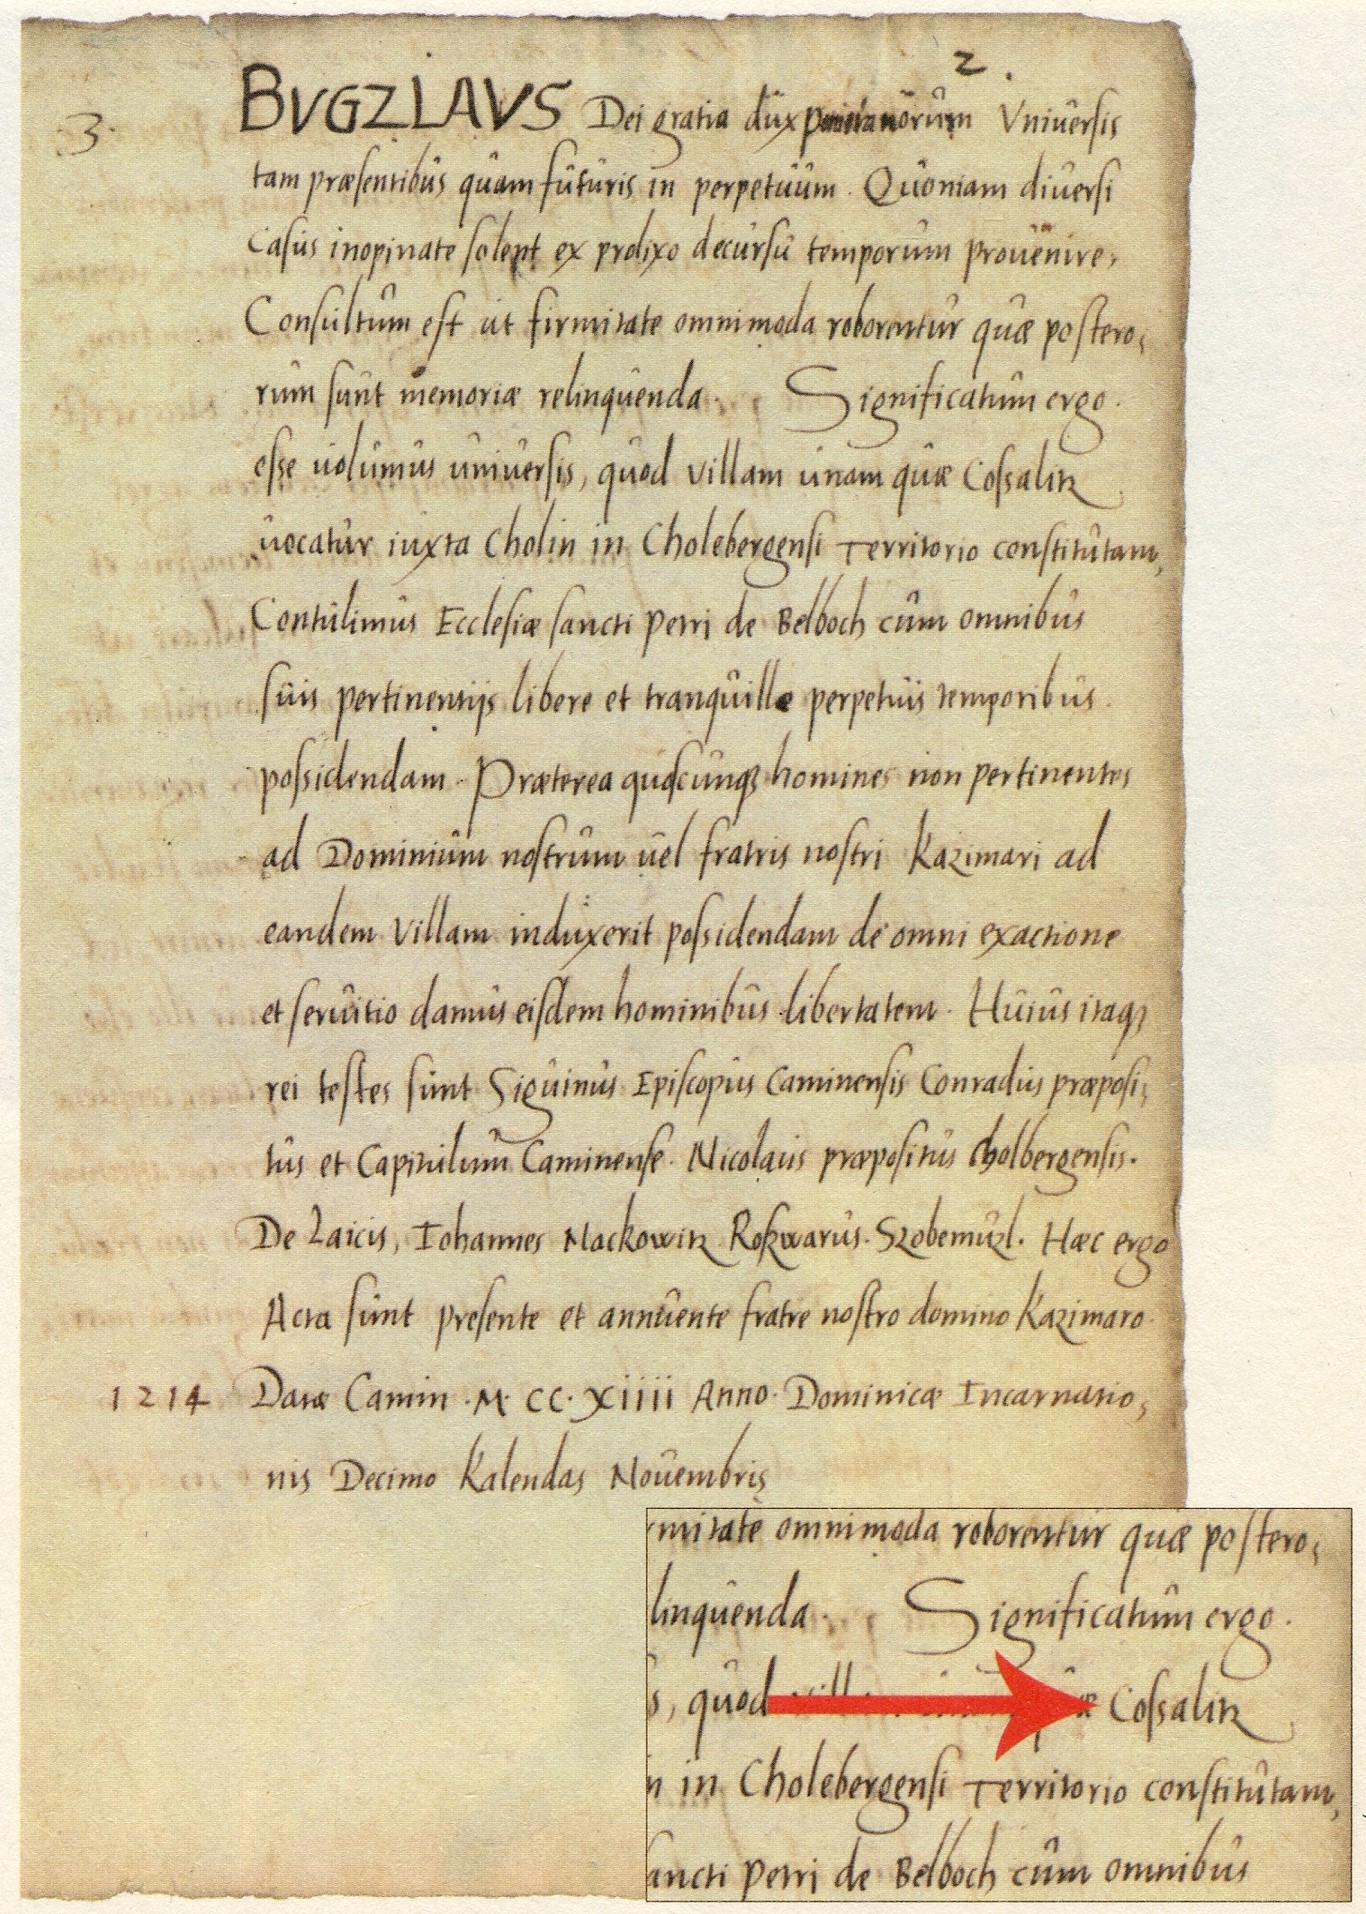 2.
3.
BVGZLAVS Dei gratia dux Universis
tam præsentibus quam futuris in perpetuum. Quoniam diversi
Casus inopinate solent ex prolixo decursu temporum provenire,
Consultum est ut firmitate omnimoda roborentur quæ postero,
rum sunt memoriæ relinquenda. Significatum ergo.
esse volumus universis, quod villam unam quæ Cossalitz
vocatur iuxta Cholin in Cholebergensi Territorio constitutam,
Contulimus Ecclesiæ sancti Petri de Belboch cum omnibus
suis pertinentijs libere et tranquille perpetuis temporibus
possidendam. Præterea quoscunq3 homines non pertinentes
ad Dominium nostrum vel fratris nostri Kazimari ad
eandem villam induxerit possidendam de omni exactione
et servitio damus eisdem hominibus libertatem. Huius itaq3
rei testes sunt Siguinus Episcopus Caminensis Conradus præposi,
tus et Capitulum Caminense. Nicolaus præpositus Cholbergensis.
De Laicis, Iohannes Nackowitz Rokwarus. Szobemuzl. Hæc ergo
Acta sunt presente et annuente fratre nostro domino Kazimaro.
1214 Datæ Camin .M. CC. XIIII Anno. Dominicæ Incarnatio,
nis Decimo Kalendas Novembris
rmitate omnimoda roborentur quæ postero,
linquenda. Significatum ergo.
s, quod æ Cossalitz
n in Cholebergensi Territorio constitutam,
ancti Petri de Belboch cum omnibus